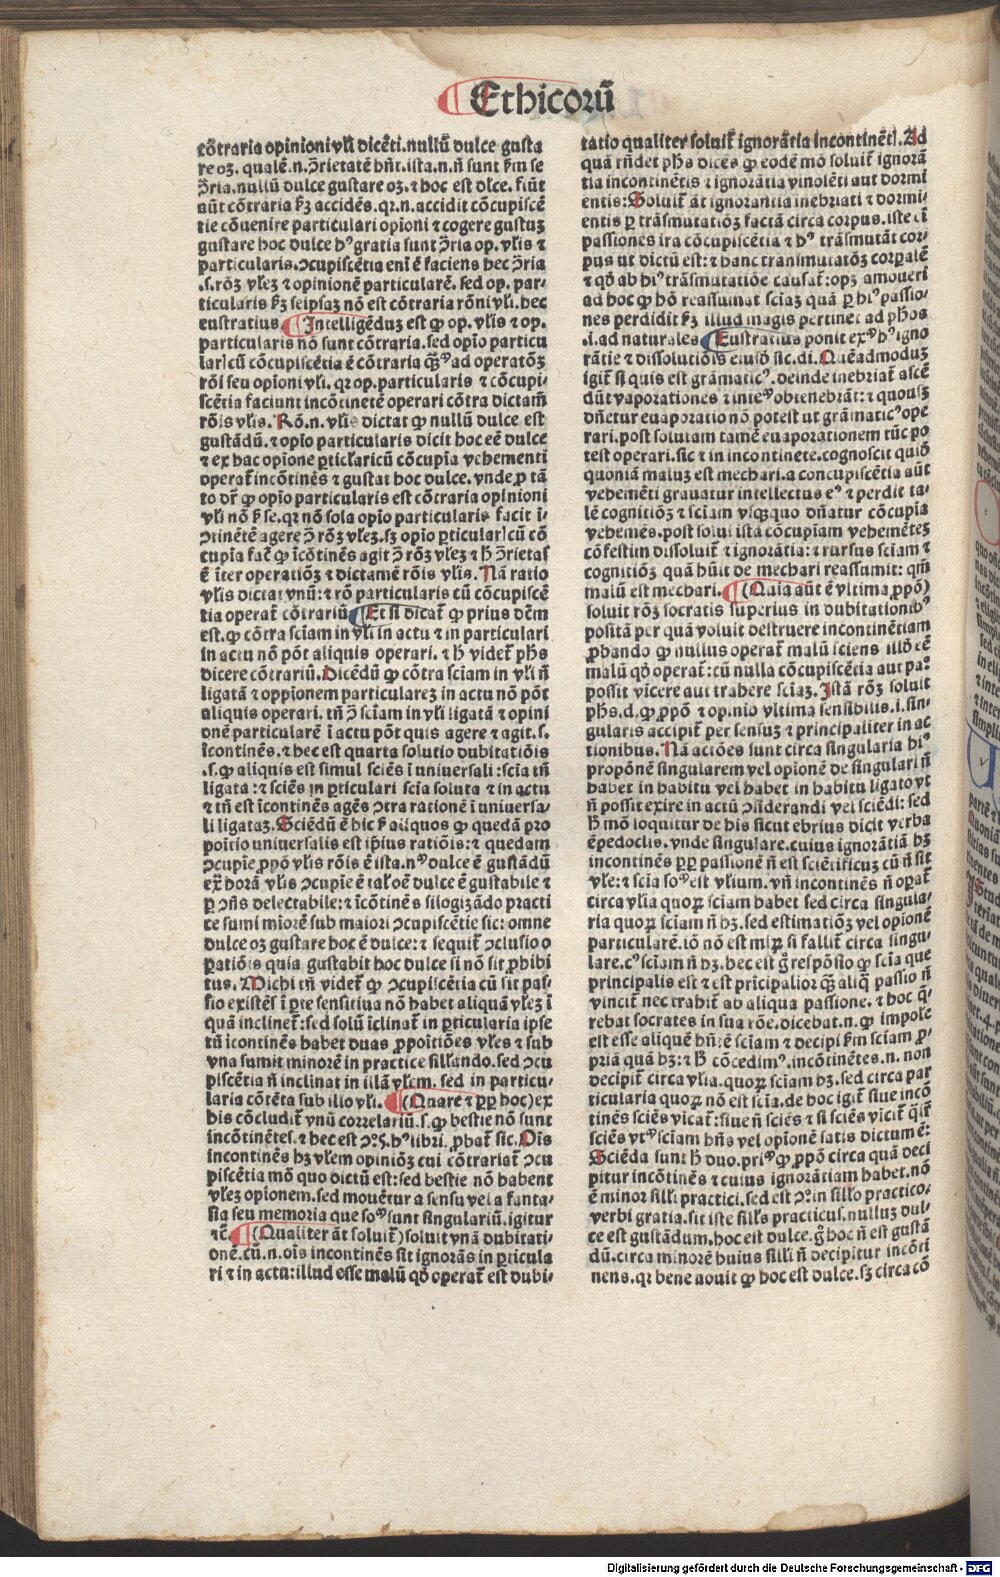 Ethicorū
cōtraria opinioni vl̄i dicēti.nullū dulce gusta
re oꝫ. qualē.n.ↄ̄rietatē bn̄t.ista.n.n̄ sunt ẜm se
ↄ̄ria.nullū dulce gustare oꝫ.⁊ hoc est dlce. fiūt
aūt cōtraria ẜꝫ accidēs.qꝛ.n.accidit cōcupiscē
tie cōuenire particulari opiōni ⁊ cogere gustuꝫ
gustare hoc dulce hꝰ gratia sunt ↄ̄ria op. vl̄is ⁊
particularis.ↄcupiscētia eni ē faciens hec ↄ̄ria
.s.rōꝫ vl̄eꝫ ⁊ opinionē particularē. sed op. par-
ticularis ẜꝫ seipsaꝫ nō est cōtraria rōni vl̄i. hec
eustratius. Intelligēduꝫ est ꝙ op. vl̄is ⁊ op.
particularis nō sunt cōtraria. sed opio particu
lar̄ cū cōcupiscētia ē cōtraria ad operatōꝫ
rōi seu opiōni vl̄i. qꝛ op.particularis ⁊ cōcupi-
scētia faciunt incōtinētē operari cōtra dictam̄
rōis vl̄is. Rō.n. vl̄is dictat ꝙ nullū dulce est
gustādū.⁊ opio particularis dicit hoc eē dulce
⁊ ex hac opiōne ꝑticl̄aricū cōcupīa vehementi
operat̄ incōtinēs ⁊ gustat hoc dulce. vnde ꝓ tā
to dr̄ ꝙ opio particularis est cōtraria opinioni
vl̄i nō ꝑ se.qꝛ nō sola opio particularis facit i-
ↄtinētē agere ↄ̄ rōꝫ vl̄eꝫ.sꝫ opio ꝑticular̄ cū cō
cupīa fac̄ ꝙ īcōtinēs agit ↄ̄ rōꝫ vl̄eꝫ ⁊ h̄ ↄ̄rietas
ē īter operatiōꝫ ⁊ dictamē rōis vl̄is. Nā ratio
vl̄is dictat vnū: ⁊ rō particularis cū cōcupiscē
tia operat̄ cōtrariū. Et si dicat̄ ꝙ prius dc̄m
est.ꝙ cōtra sciam in vl̄i in actu ⁊ in particulari
in actu nō pōt aliquis operari. ⁊ h̄ videt̄ ph̄s
dicere cōtrariū. Dicēdū ꝙ cōtra sciam in vl̄i n̄
ligatā ⁊ oppionem particulareꝫ in actu nō pōt
aliquis operari. tn̄ ↄ̄ sciam in vl̄i ligatā ⁊ opini
onē particularē ī actu pōt quis agere ⁊ agit.s.
īcontinēs.⁊ hec est quarta solutio dubitatiōis
.s.ꝙ aliquis est simul sciēs ī uniuersali :scīa tn̄
ligata :⁊ sciēs in ꝑticulari scīa soluta ⁊ in actu
⁊ tn̄ est īcontinēs agēs ↄtra rationē ī uniuersa-
li ligataꝫ. Sciēdū ē hic ẜ aliquos ꝙ quedā pro
poītio uniuersalis est ip̄ius ratiōis: ⁊ quedam
ↄcupīe ꝓpō vl̄is rōis ē ista.nꝰ dulce ē gustādū
ex̄ horā vl̄is ↄcupīe ē tal̄ oē dulce ē gustabile ⁊
ꝑ ↄn̄s delectabile: ⁊ īcōtinēs silogizādo practi
ce sumi miorē sub maiori ↄcupiscētie sic: omne
dulce oꝫ gustare hoc ē dulce: ⁊ sequit̄ ↄclusio o
ꝑatiōis quia gustabit hoc dulce si nō sit ꝓhibi
tus. Michi tn̄ videt̄ ꝙ ↄcupiscētia cū sit pas-
sio existēs ī ꝑte sensitiua nō habet aliquā vl̄eꝫ ī
quā inclinet̄ :sed solū īclinat̄ in ꝑticularia ipse
tn̄ īcontinēs habet duas ꝓpoītiōes vl̄es ⁊ sub
vna sumit minorē in practice sill̄ando. sed ↄcu
piscētia n̄ inclinat in illā vl̄em. sed in particu-
laria cōtēta sub illo vl̄i. (Quare ⁊ ꝓꝑ hoc) ex
his cōcludit̄ vnū correlariū.s.ꝙ bestie nō sunt
incōtinētes.⁊ hec est ↄ°.5.hꝰ libri.ꝓbat̄ sic. Oīs
incontinēs hꝫ vl̄em opiniōꝫ cui cōtrariat̄ ↄcu
piscētia mō quo dictū est:sed bestie nō habent
vl̄eꝫ opionem.sed mouētur a sensu vel a fanta-
sia seu memoria que soꝰ sunt singulariū.igitur
⁊c̄. (Qualiter āt soluit̄) soluit vnā dubitati-
onē.cū.n.oīs incontinēs sit ignorās in ꝑticula
ri ⁊ in actu: illud esse malū qd̄ operat̄ est dubi-
tatio qualiter soluit̄ ignorātia incontinētī. Ad
quā rn̄det ph̄s dicēs ꝙ eodē mō soluit̄ ignorā
tia incontinētis ⁊ ignorātia vinolēti aut dormi
entis: Soluit̄ āt ignorantia inebriati ⁊ dormi-
entis per trāsmutatiōꝫ factā circa corpus.iste ēi
passiones ira cōcupiscētia ⁊ hꝰ trāsmutāt cor-
pus ut dictū est: ⁊ hanc transmutatōꝫ corꝑalē
⁊ qd̄ ab hiꝰ trāsmutatiōe causat̄ :opꝫ amoueri
ad hoc ꝙ hō reassumat sciaꝫ quā ꝑ hiꝰ passio-
nes perdidit ẜꝫ illud magis pertinet ad ph̄os
.i.ad naturales Eustratius ponit exᵐ hꝰ igno
rātie ⁊ dissolutiōis eiusd̄ sic.di. Quēadmoduꝫ
igit̄ si quis est grāmaticꝰ. deinde inebriat̄ ascē
dūt vaporationes ⁊ inteꝰ obtenebrāt: ⁊ quousꝫ
dn̄etur euaporatio nō potest ut grāmaticꝰ ope
rari. post solutam tamē euaporationem tūc po
test operari. sic ⁊ in incontinete.cognoscit quiō
quoniā maluꝫ est mechari.a concupiscētia aūt
vehemēti grauatur intellectus eꝰ ⁊ perdit ta-
lē cognitiōꝫ ⁊ sciam vsꝗquo dn̄atur cōcupīa
vehemēs.post solui istā cōcupiam vehemētē
cōfestim dissoluit̄ ⁊ ignorātia: ⁊ rursus sciam ⁊
cognitiōꝫ quā hūit de mechari reassumit: qm̄
malū est mechari. (Quia aūt ē vltima ꝓpō)
soluit rōꝫ socratis superius in dubitationibꝰ
positā per quā voluit destruere incontinētiam
ꝓbando ꝙ nullus operat̄ malū sciens illd̄ eē
malū qd̄ operat̄ : cū nulla cōcupiscētia aut paᵒ
possit vīcere aut trahere sciaꝫ. Istā rōꝫ soluit
ph̄s.d.ꝙ ꝓpō ⁊ opinio vltima sensibilis.i.sin-
gularis accipit̄ per sensuꝫ ⁊ principaliter in ac
tionibus. Nā actiōes sunt circa singularia hiꝰ
propōnē singularem vel opionē de singulari n̄
habet in habitu vel habet in habitu ligato vt
n̄ possit exire in actū ↄn̄siderandi vel sciēdi: sed
h̄ mō loquitur de his sicut ebrius dicit verba
ēpedoclis. vnde singulare.cuius ignorātiā hꝫ
incontinēs ꝓꝑ passionē n̄ est sciētificuꝫ cū n̄ sit
vl̄e: ⁊ scīa soꝰ est vl̄ium. vn̄ incontinēs n̄ opat̄
circa vl̄ia quoꝝ sciam habet sed circa singula-
ria quoꝝ sciam n̄ hꝫ. sed estimatiōꝫ vel opionē
particularē. iō nō est miꝝ si fallit̄ circa singu-
lare. cꝰ sciam n̄ hꝫ. hec est ḡ respōsio ꝙ scīa que
principalis est ⁊ est pricipalioꝝ qꝫ aliq̄ passio n̄
vincit̄ nec trahit̄ ab aliqua passione. ⁊ hoc q̄-
rebat socrates in sua rōe.dicebat.n.ꝙ impole
est esse aliquē bn̄: ē sciam ⁊ decipi ẜm sciam ꝓ-
priā quā hꝫ: ⁊ h̄ cōcedimꝰ. incōtinētes.n. non
decipit̄ circa vl̄ia. quoꝝ sciam hꝫ. sed circa par
ticularia quoꝝ nō est scīa. de hoc igit̄ siue incō
tinēs sciēs vicat̄ : siue n̄ sciēs ⁊ si sciēs vicit̄ q̄ir̄
sciēs vtꝰ sciam hn̄s vel opionē satis dictum ē:
Sciēda sunt h̄ duo. priᵒ ꝙ ꝓpō circa quā deci
pitur incōtinēs ⁊ cuius ignorātiam habet. nō
ē minor sill̄i practici. sed est ↄᵒ: in sill̄o practico.
verbi gratia. sit iste sill̄s practicus.nulluꝫ dul-
ce est gustādum. hoc est dulce. ḡ hoc n̄ est gustā
dū. circa minorē huius sill̄i n̄ decipitur incōti
nens. qꝛ bene nouit ꝙ hoc est dulce. sꝫ circa cō
Digitalisierung gefördert durch die Deutsche Forschungsgemeinschaft - DFG